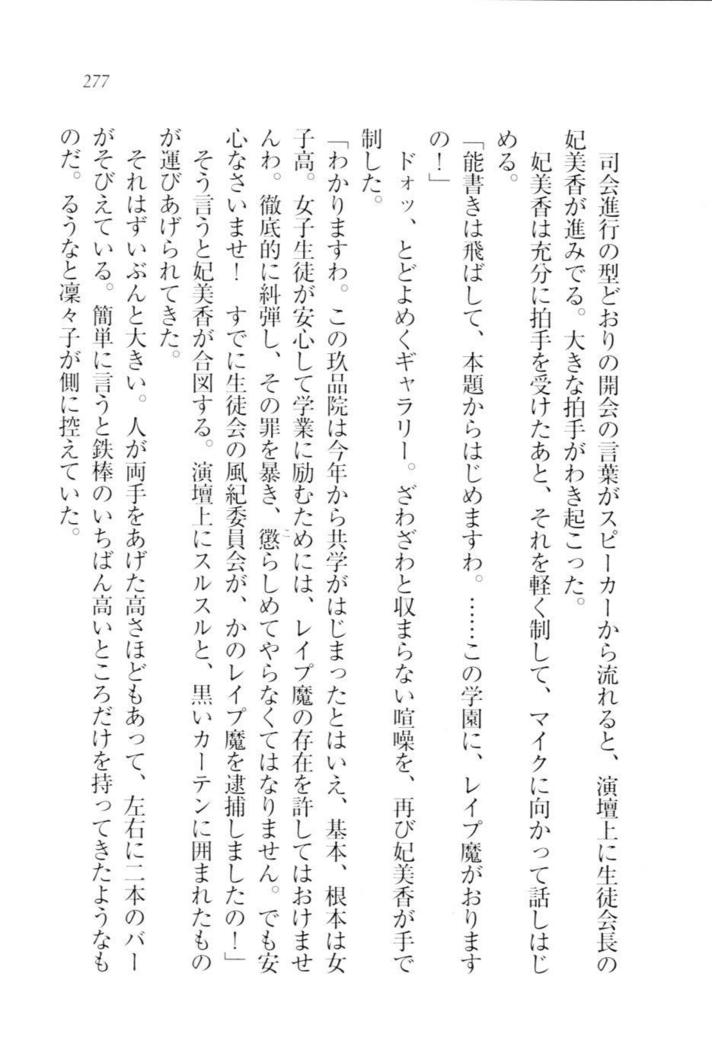 277
司会進行の型どおりの開会の言葉がスピーカーから流れると、演壇上に生徒会長の
妃美香が進みでる。大きな拍手がわき起こった。
妃美香は充分に拍手を受けたあと、それを軽く制して、マイクに向かって話しはじ
める。
「能書きは飛ばして、本題からはじめますわ。……この学園に、レイプ魔がおります
の！」
ドォッ、とどよめくギャラリー。ざわざわと収まらない喧噪を、再び妃美香が手で
制した。
「わかりますわ。この玖品院は今年から共学がはじまったとはいえ、基本、根本は女
子高。女子生徒が安心して学業に励むためには、レイプ魔の存在を許してはおけませ
んわ。徹底的に糾弾し、その罪を暴き、懲らしめてやらなくてはなりません。でも安
心なさいませ！　すでに生徒会の風紀委員会が、かのレイプ魔を逮捕しましたの！」
そう言うと妃美香が合図する。演壇上にスルスルと、黒いカーテンに囲まれたもの
が運びあげられてきた。
それはずいぶんと大きい。人が両手をあげた高さほどもあって、左右に二本のバー
がそびえている。簡単に言うと鉄棒のいちばん高いところだけを持ってきたようなも
のだ。るうなと凜々子が側に控えていた。